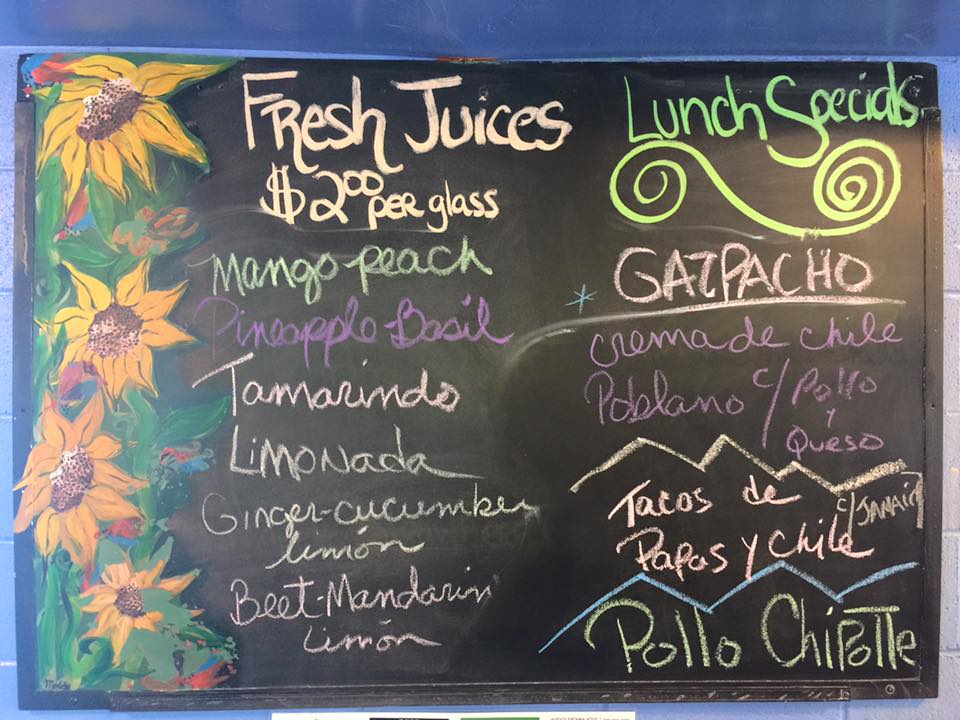 Fresh Juices
$2.00 per glass
Mango-peach
Pineapple-Basil
Tamarindo
Limonada
Ginger-cucumber
limón
Beet-Mandarin
Limón
Lunch Specials
GAZPACHO
* crema de chile
Poblano c/ Pollo
y
Queso
Tacos de
c/JAMAICA
Papas y Chile
Pollo Chipotle